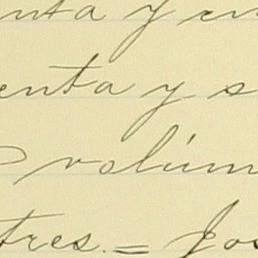 enta y en
enta y s
volúm
tres. = Jos